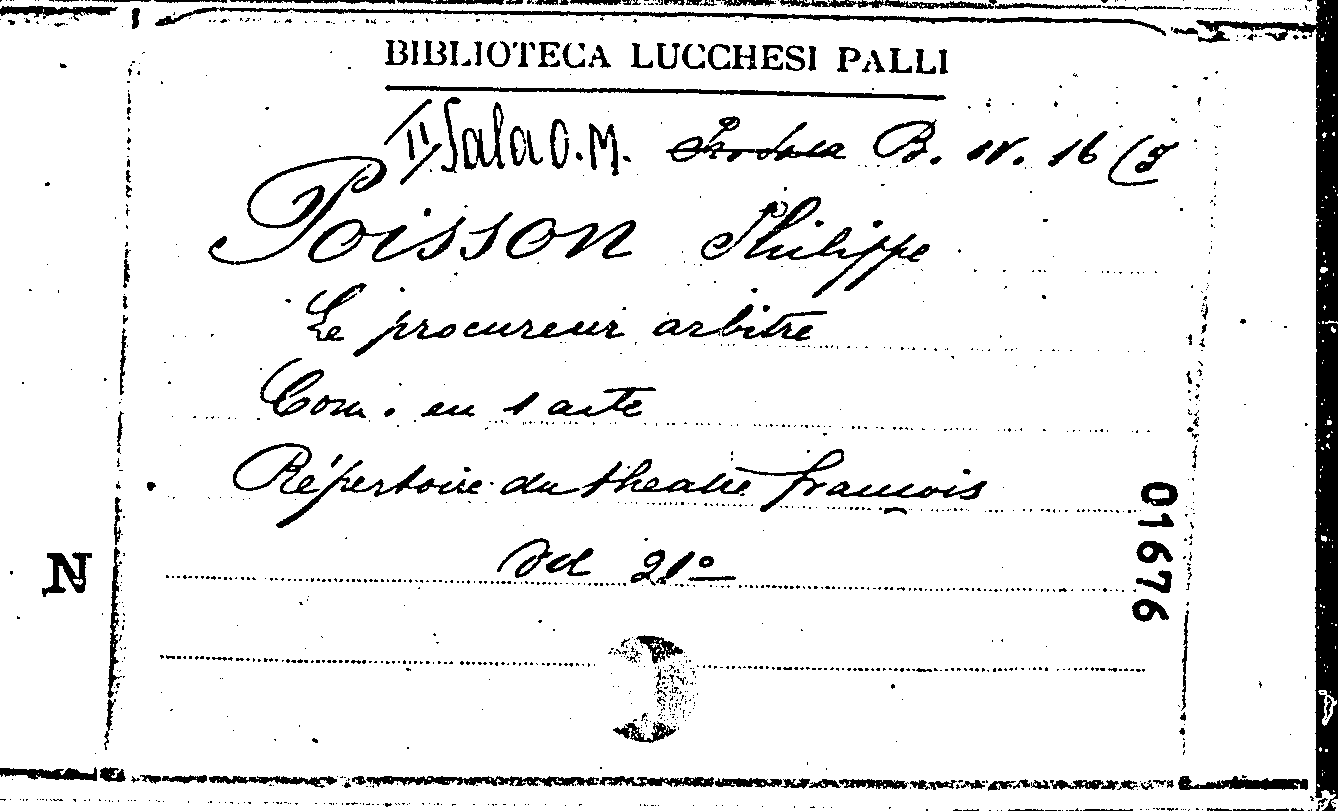 BIBLIOTECA LUCCHESI PALLI
II Sala O.M. B. IV. 16 (7
Poisson Philippe
Le procureur arbitre
Com. en 1 acte
Répertoire du theatre françois
Vol 21º
N
01676